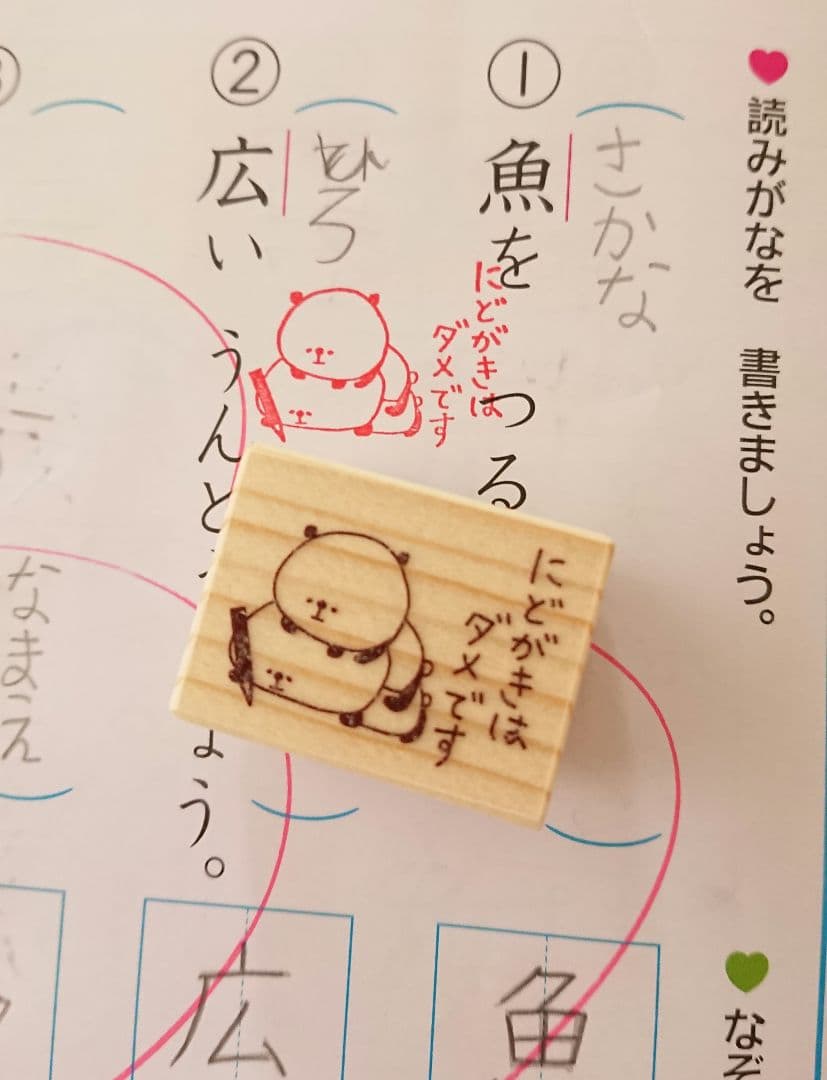 読みがなを 書きましょう。
なぞ
①
さかな
魚を つる
②
ひろ
広い うんど
ょう。
なまえ
にどがきは
ダメです
にどがきは
ダメです
魚
広